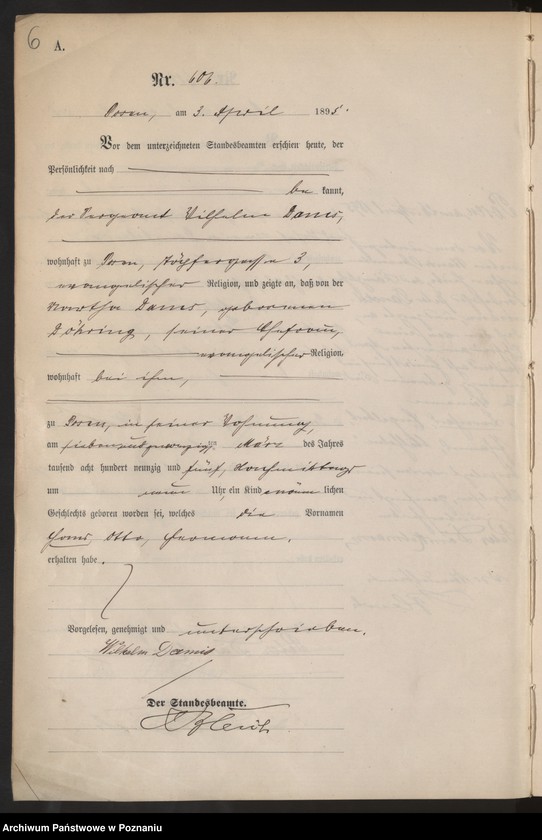 6
A.
Nr. 606.
Posen, am 3. April 1895.
Vor dem unterzeichneten Standesbeamten erschien heute, der
Persönlichkeit nach
bekannt,
der Sergeant Wilhelm Dams,
wohnhaft zu Posen, Töpfergasse 3,
evangelischer Religion, und zeigte an, daß von der
Martha Dams, geborenen
Döhring, seiner Ehefrau,
evangelischer Religion,
wohnhaft bei ihm,
zu Posen, in seiner Wohnung,
am siebenundzwanzigsten März des Jahres
tausend acht hundert neunzig und fünf, Nachmittags
um neun Uhr, ein Kind männlichen
Geschlechts geboren worden sei, welches die Vornamen
Hans, Otto, Hermann,
erhalten habe.
Vorgelesen, genehmigt und unterschrieben.
Wilhelm Dams
Der Standesbeamte.
Archiwum Państwowe w Poznaniu